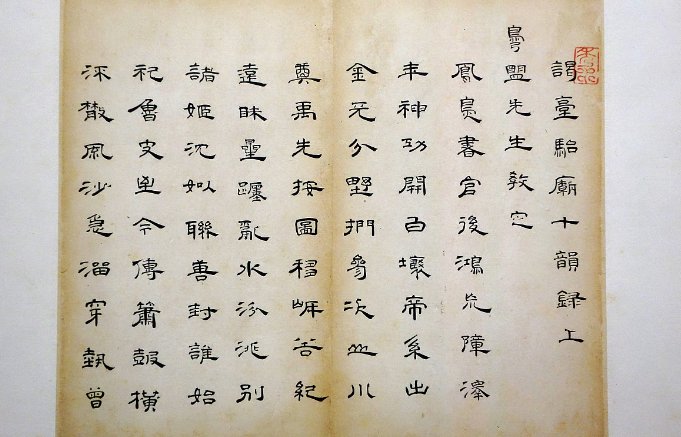 謁臺駘廟十韻錄上
鳧盟先生教定
鳳鳥書官後鴻荒障澤
年神功開白壤帝系出
金天分野捫參次山川
奠禹先按圖移谷紀
遠昧星躔亂水汾洮別
諸姬沈姒聯善封誰始
祀魯史至今傳簫鼓橫
汾散風沙急溜穿執曾